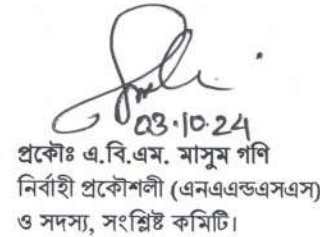 03.10.24
প্রকৌঃ এ.বি.এম. মাসুম গণি
নির্বাহী প্রকৌশলী (এনএএন্ডএসএস)
ও সদস্য, সংশ্লিষ্ট কমিটি।